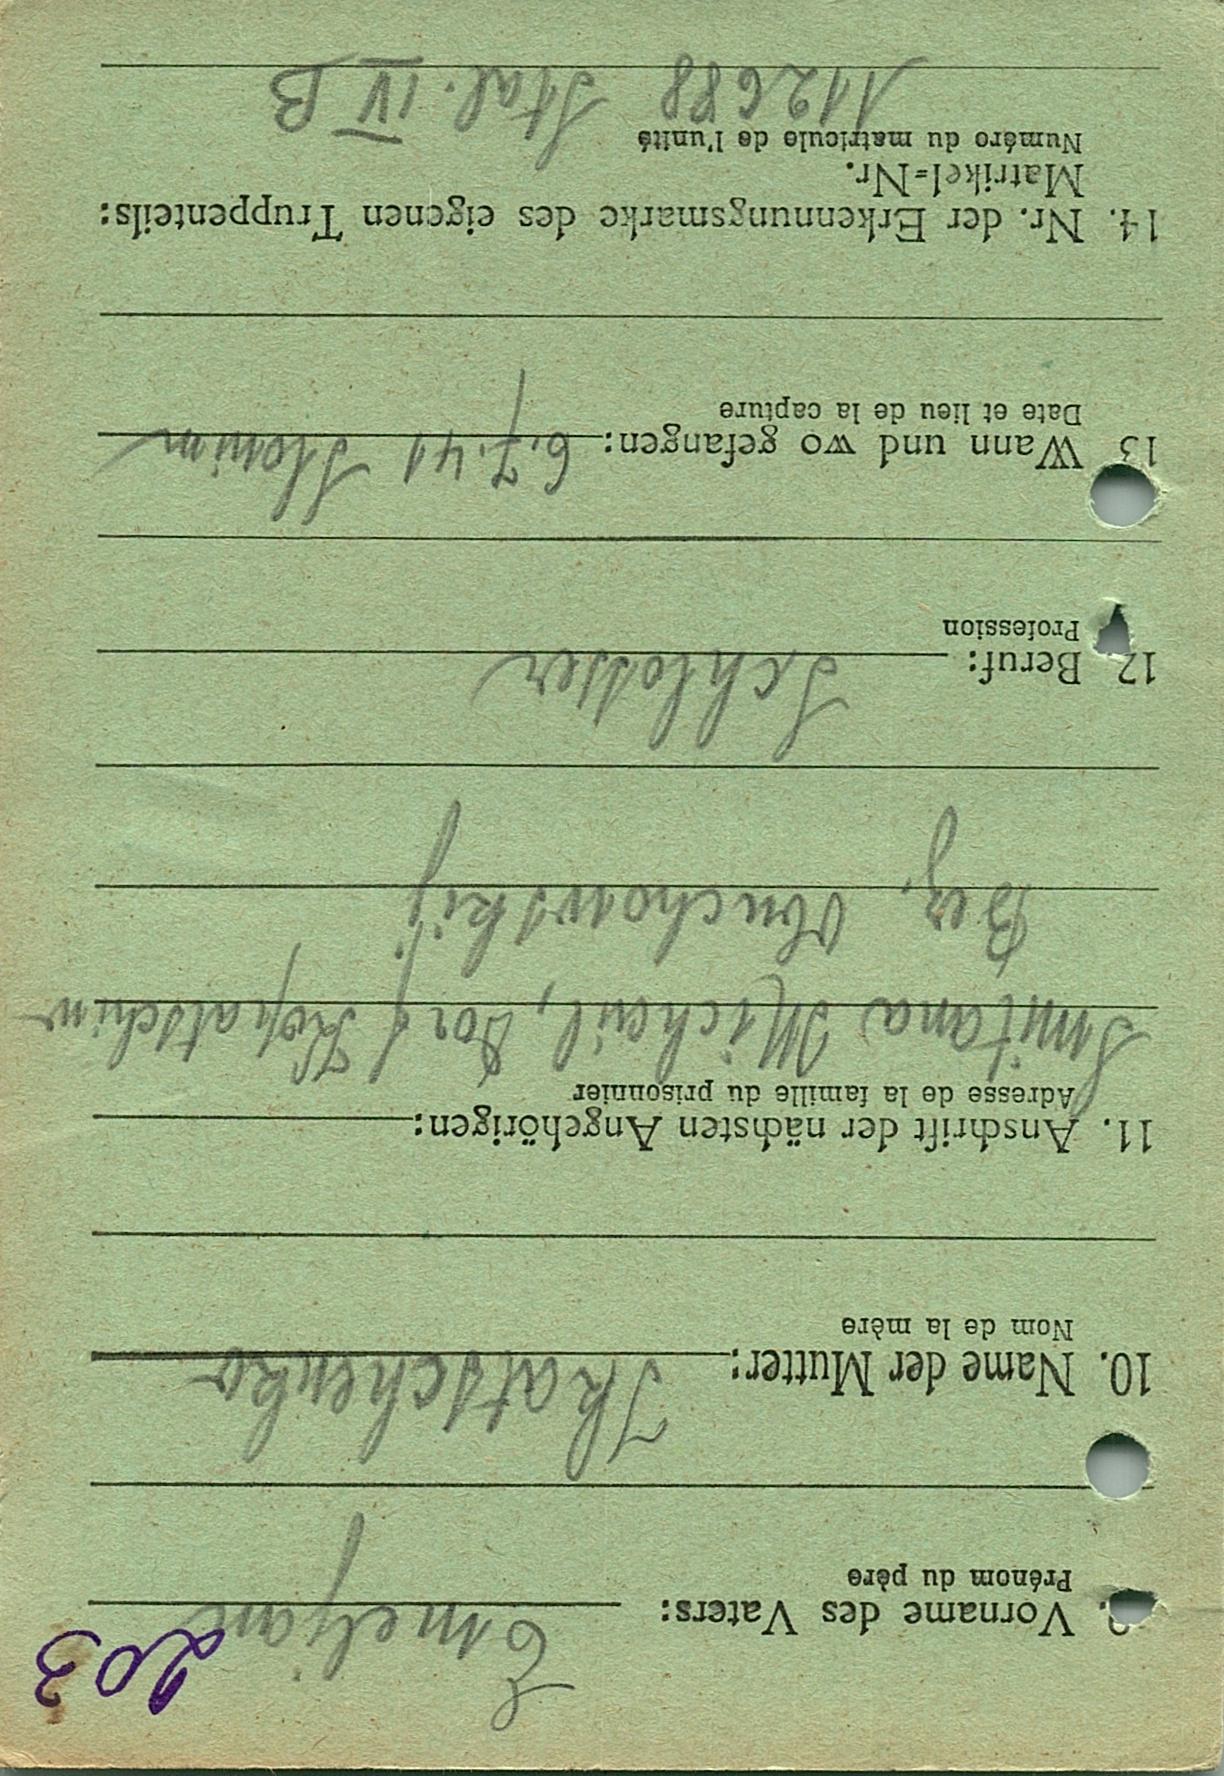 203
9. Vorname des Vaters: Emeljan
Prénom du père
10. Name der Mutter: Tkatschenko
Nom de la mère
11. Anschrift der nächsten Angehörigen:
Adresse de la famille du prisonnier
Smitana Michail, Dorf Kopatschiw
Bez. Obuchowskij
12. Beruf: Schlosser
Profession
13 Wann und wo gefangen: 6.7.41 Slonim
Date et lieu de la capture
14. Nr. der Erkennungsmarke des eigenen Truppenteils:
Matrikel=Nr.
Numéro du matricule de l'unité
112688 Stal. IV B